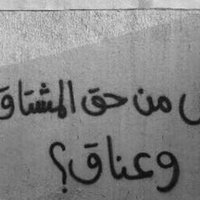 من حق المشتاق
وعناق؟